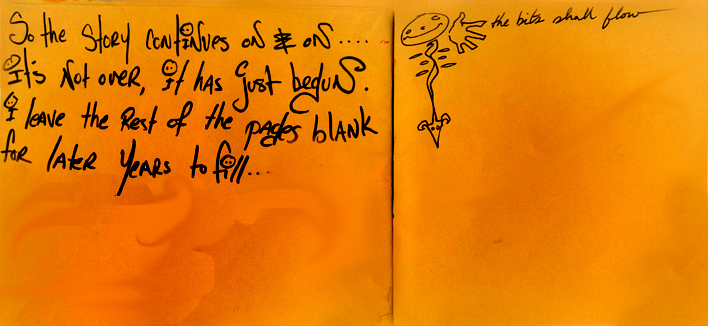 So the Story continues on & on....
It's Not over, it has just begun.
I leave the Rest of the pages blank
for later years to fill...
the bits shall flow